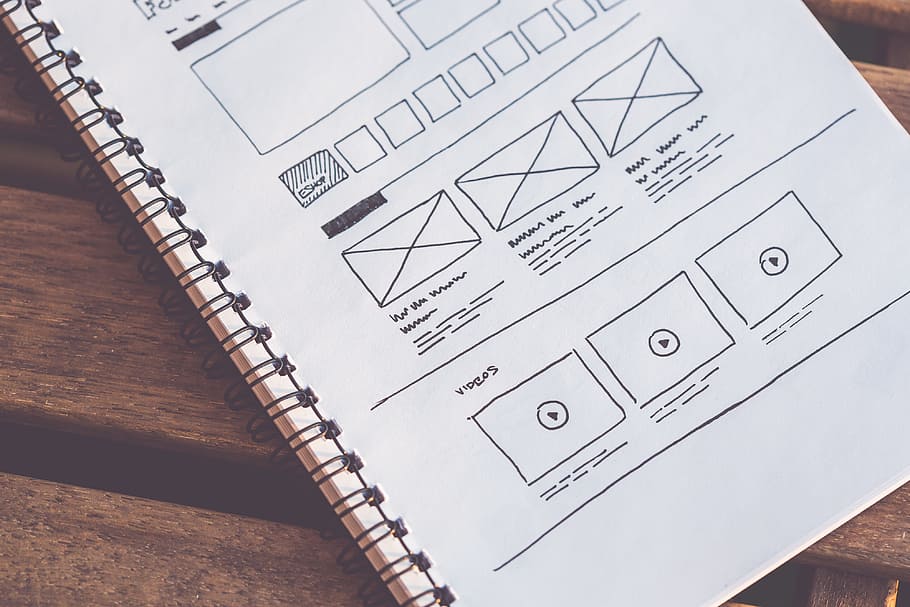 eSHOP
VIDEOS